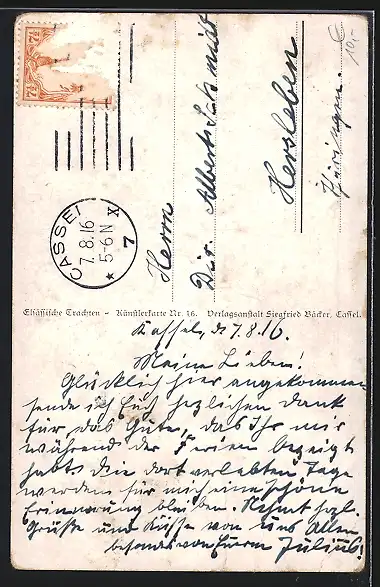 10,-
7½
7½
CASSEL
7.8.16
5-6 N
* 7 X
Herrn
Dir. Albert Schmidt
Hersleben
Thüringen.
Elsässische Trachten – Künstlerkarte Nr. 16. Verlagsanstalt Siegfried Bäcker, Cassel.
Kassel, d 7.8.16.
Meine Lieben!
Glücklich hier angekommen
sende ich Euch herzlichen Dank
für das Gute, das Ihr mir
während der Ferien bezeigt
habt. Die dort verlebten Tage
werden für mich eine schöne
Erinnerung bleiben. Nehmt hzl.
Grüße und Küsse von uns Allen
besonders von Eurem Julius!